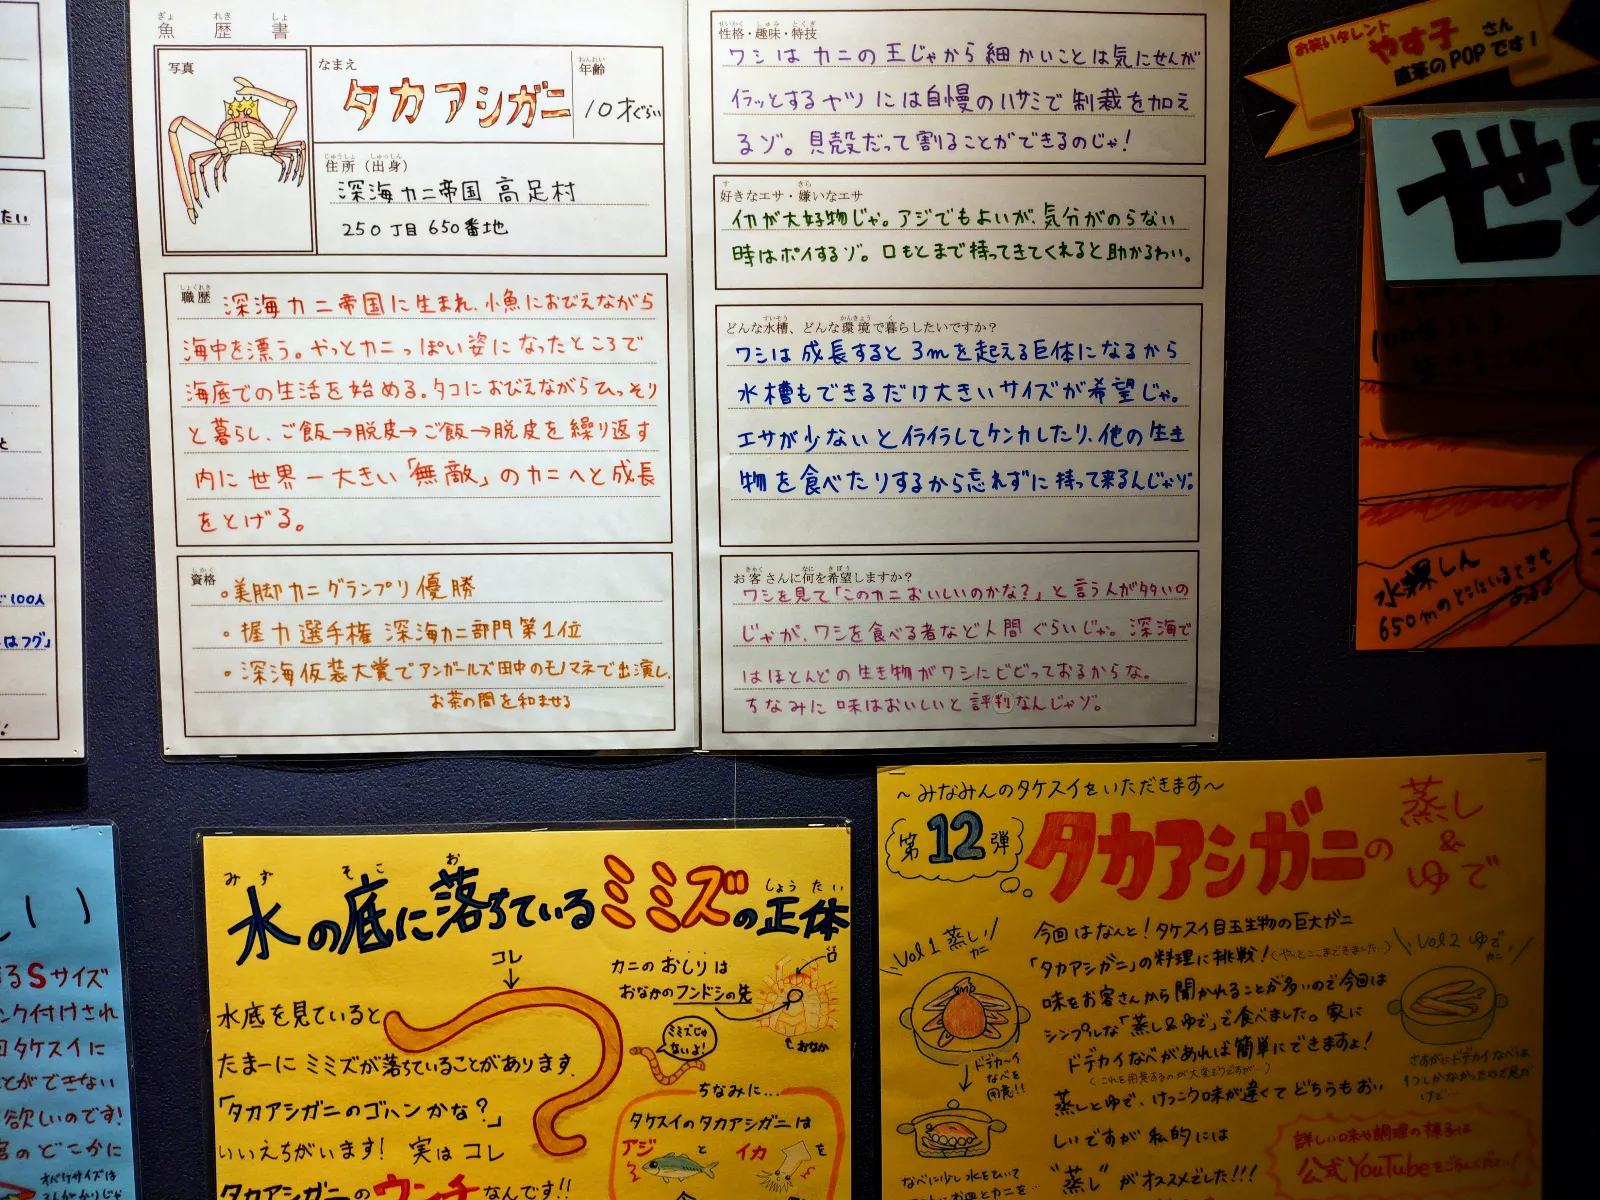 魚歴書
写真
なまえ
タカアシガニ
年齢
10才ぐらい
住所(出身)
深海カニ帝国 高足村
250丁目650番地
職歴
深海カニ帝国に生まれ、小魚におびえながら
海中を漂う。やっとカニっぽい姿になったところで
海底での生活を始める。タコにおびえながらひっそり
と暮らし、ご飯→脱皮→ご飯→脱皮を繰り返す
内に世界一大きい「無敵」のカニへと成長
をとげる。
資格
・美脚カニグランプリ優勝
・握力選手権 深海カニ部門第1位
・深海仮装大賞でアンガールズ田中のモノマネで出演し、
お茶の間を和ませる
性格・趣味・特技
ワシはカニの王じゃから細かいことは気にせんが
イラッとするヤツには自慢のハサミで制裁を加え
るゾ。貝殻だって割ることができるのじゃ!
好きなエサ・嫌いなエサ
イカが大好物じゃ。アジでもよいが、気分がのらない
時はポイするゾ。口もとまで持ってきてくれると助かるわい。
どんな水槽、どんな環境で暮らしたいですか?
ワシは成長すると3mを起える巨体になるから
水槽もできるだけ大きいサイズが希望じゃ。
エサが少ないとイライラしてケンカしたり、他の生き
物を食べたりするから忘れずに持って来るんじゃゾ。
お客さんに何を希望しますか?
ワシを見て「このカニおいしいのかな?」と言う人が多いの
じゃが、ワシを食べる者など人間ぐらいじゃ。深海で
はほとんどの生き物がワシにビビっておるからな。
ちなみに味はおいしいと評判なんじゃゾ。
お笑いタレント
やす子さん
直筆のPOPです!
世
水粿しん
650mのとこにいるときも
あるよ
たい
100人
はフグ」
水の底に落ちているミミズの正体
コレ
水底を見ていると
たまーにミミズが落ちていることがあります。
「タカアシガニのゴハンかな?」
いいえちがいます! 実はコレ
タカアシガニのウンチなんです!!
カニのおしりは
おなかのフンドシの先
口
おなか
ミミズじゃ
ないよ!
ちなみに...
タケスイのタカアシガニは
アジとイカを
るSサイズ
ンク付けされ
回タケスイに
とができない
欲しいのです!
のどこかに
~みなみんのタケスイをいただきます~
第12弾
タカアシガニの蒸し&ゆで
Vol1 蒸しカニ
今回はなんと!タケスイ目玉生物の巨大ガニ
「タカアシガニ」の料理に挑戦!(やっとここまできました...)
味をお客さんから聞かれることが多いので今回は
シンプルな「蒸し&ゆで」で食べました。家に
ドデカイなべがあれば簡単にできますよ!
蒸しとゆで、けっこう味が違くてどちらもおい
しいですが私的には
"蒸し"がオススメでした!!!
Vol2 ゆでカニ
ドデカ~イ
なべを
用意!!
なべに少し水をひいて
詳しい味や調理の様子は
公式YouTubeをごらんください!